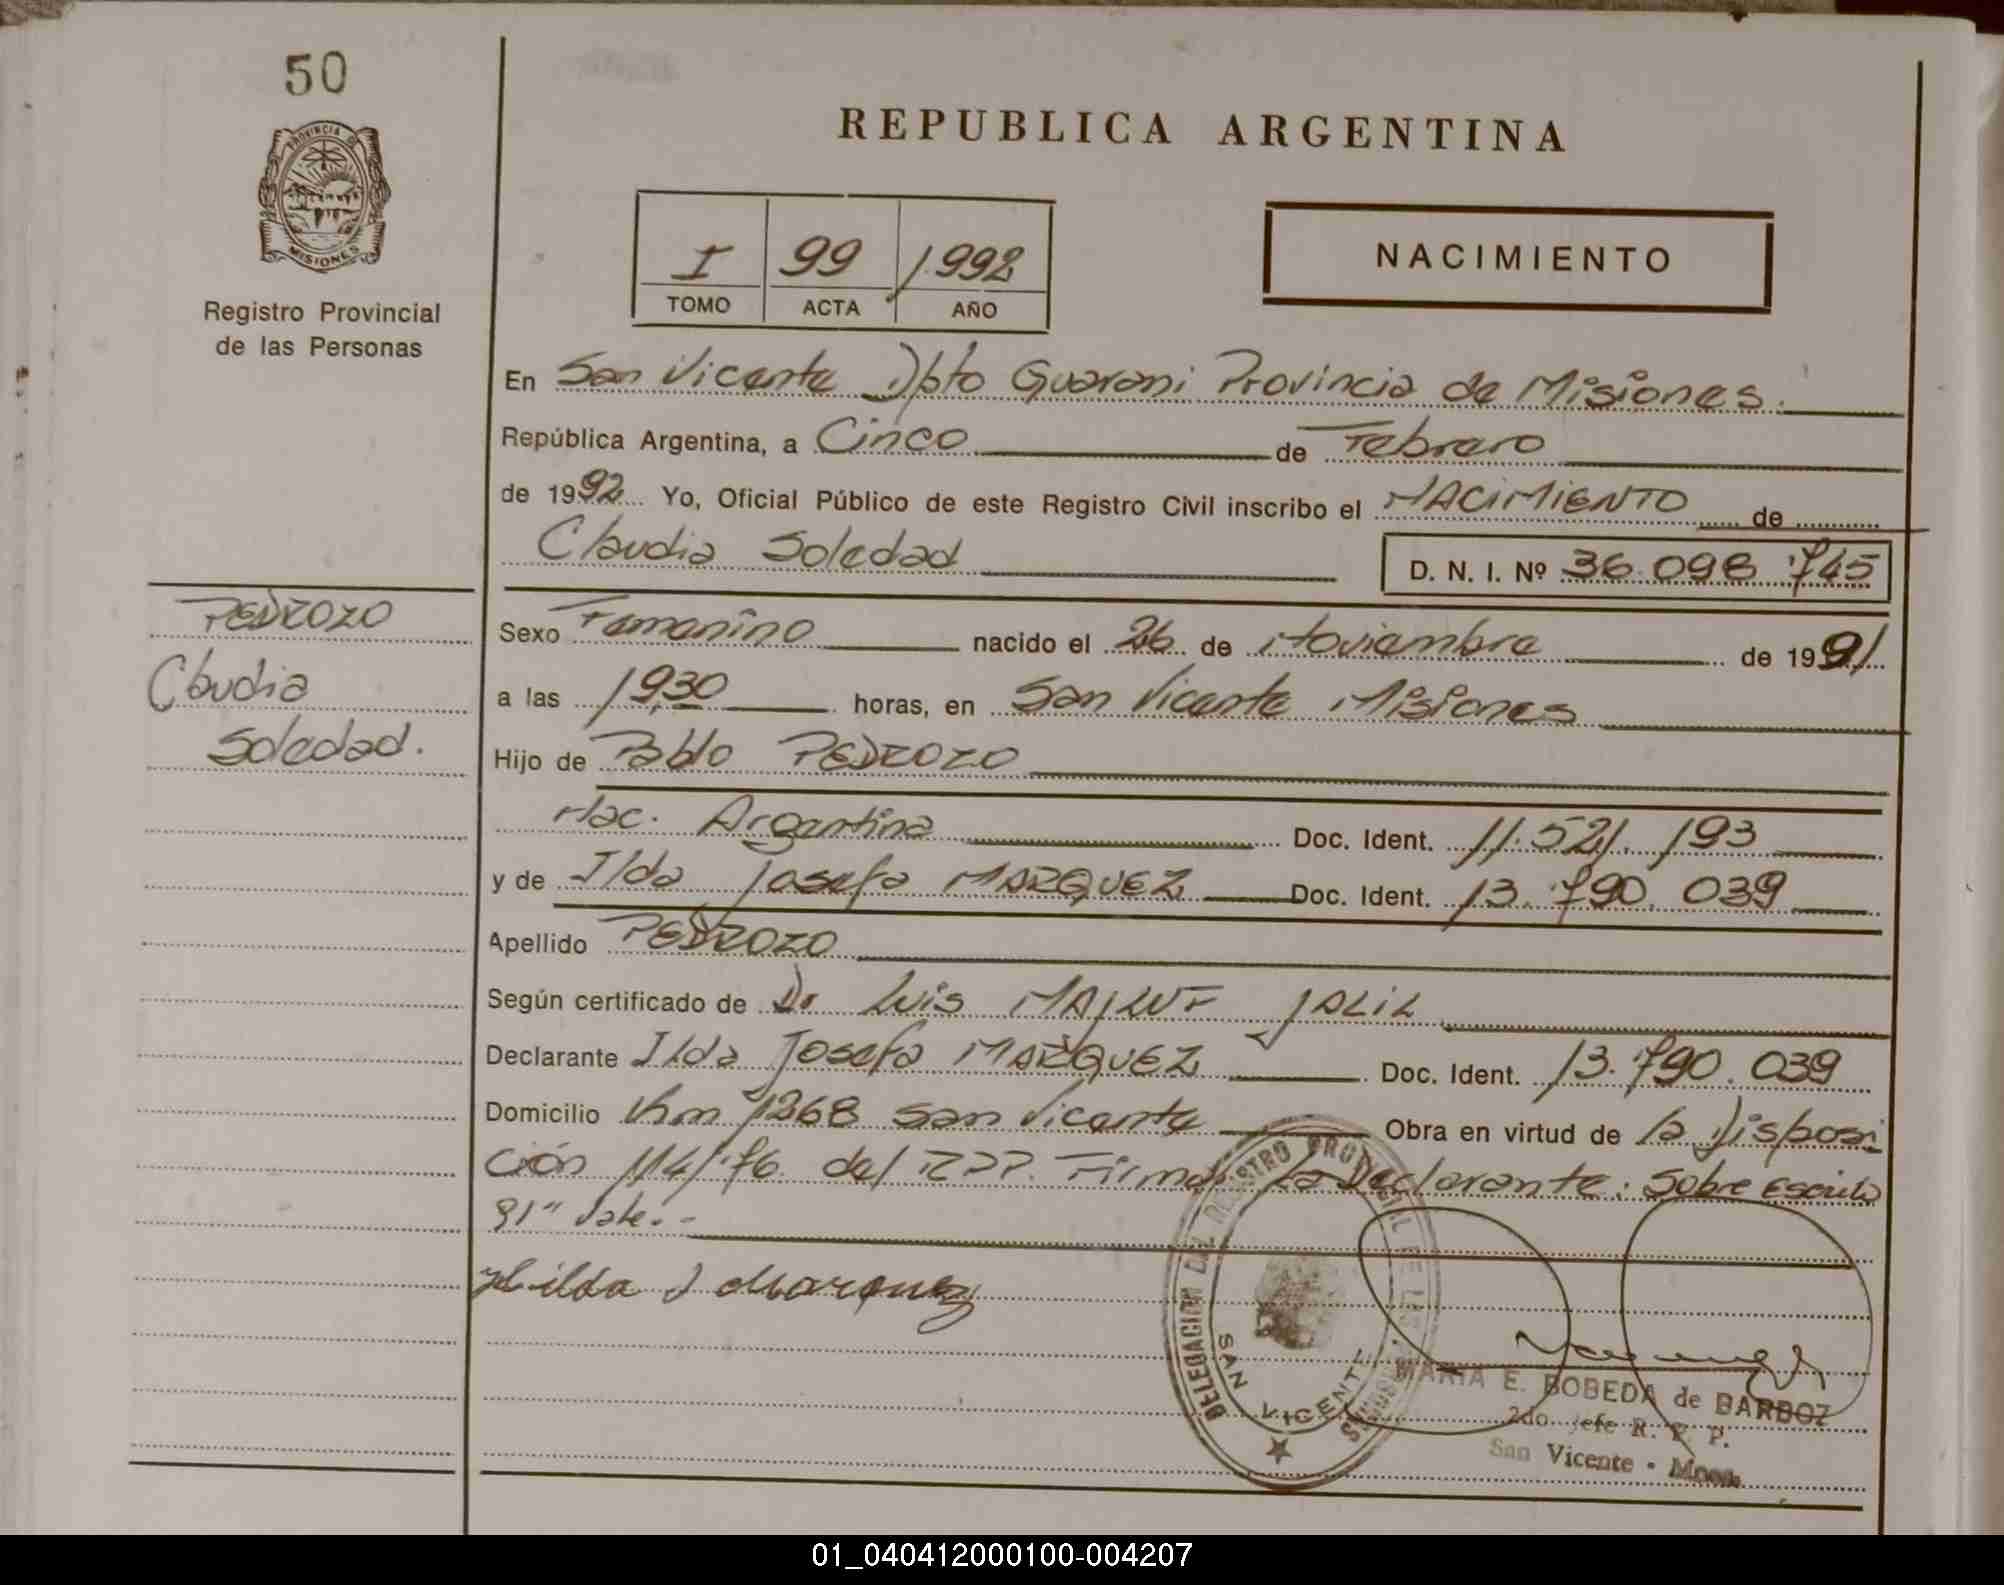 50
PROVINCIA D
MISIONES
Registro Provincial
de las Personas
REPUBLICA ARGENTINA
I 99 1992
TOMO ACTA AÑO
NACIMIENTO
En San Vicente Dpto Guarani Provincia de Misiones.
República Argentina, a Cinco de Febrero
de 1992 Yo, Oficial Público de este Registro Civil inscribo el NACIMIENTO de
Claudia Soledad D. N. I. Nº 36.098.745
PEDROZO
Claudia
Soledad.
Sexo Femenino nacido el 26 de Noviembre de 1991
a las 19,30 horas, en San Vicente Misiones
Hijo de Pablo PEDROZO
Nac. Argentina Doc. Ident. 11.521.193
y de Ilda Josefa MARQUEZ Doc. Ident. 13.790.039
Apellido PEDROZO
Según certificado de Dr Luis MAJLUF JALIL
Declarante Ilda Josefa MARQUEZ Doc. Ident. 13.790.039
Domicilio Km 1268 San Vicente Obra en virtud de la Disposi
ción 114/76 del RPP. Firma La Declarante. Sobre Escrito
91" Vale.-
Hilda J Marquez
DELEGACION DEL REGISTRO PROVINCIAL DE LAS PERSONAS
SAN VICENTE
MARIA E. BOBEDA de BARBOZ
2do. Jefe R. P. P.
San Vicente - Mnes.
01_040412000100-004207